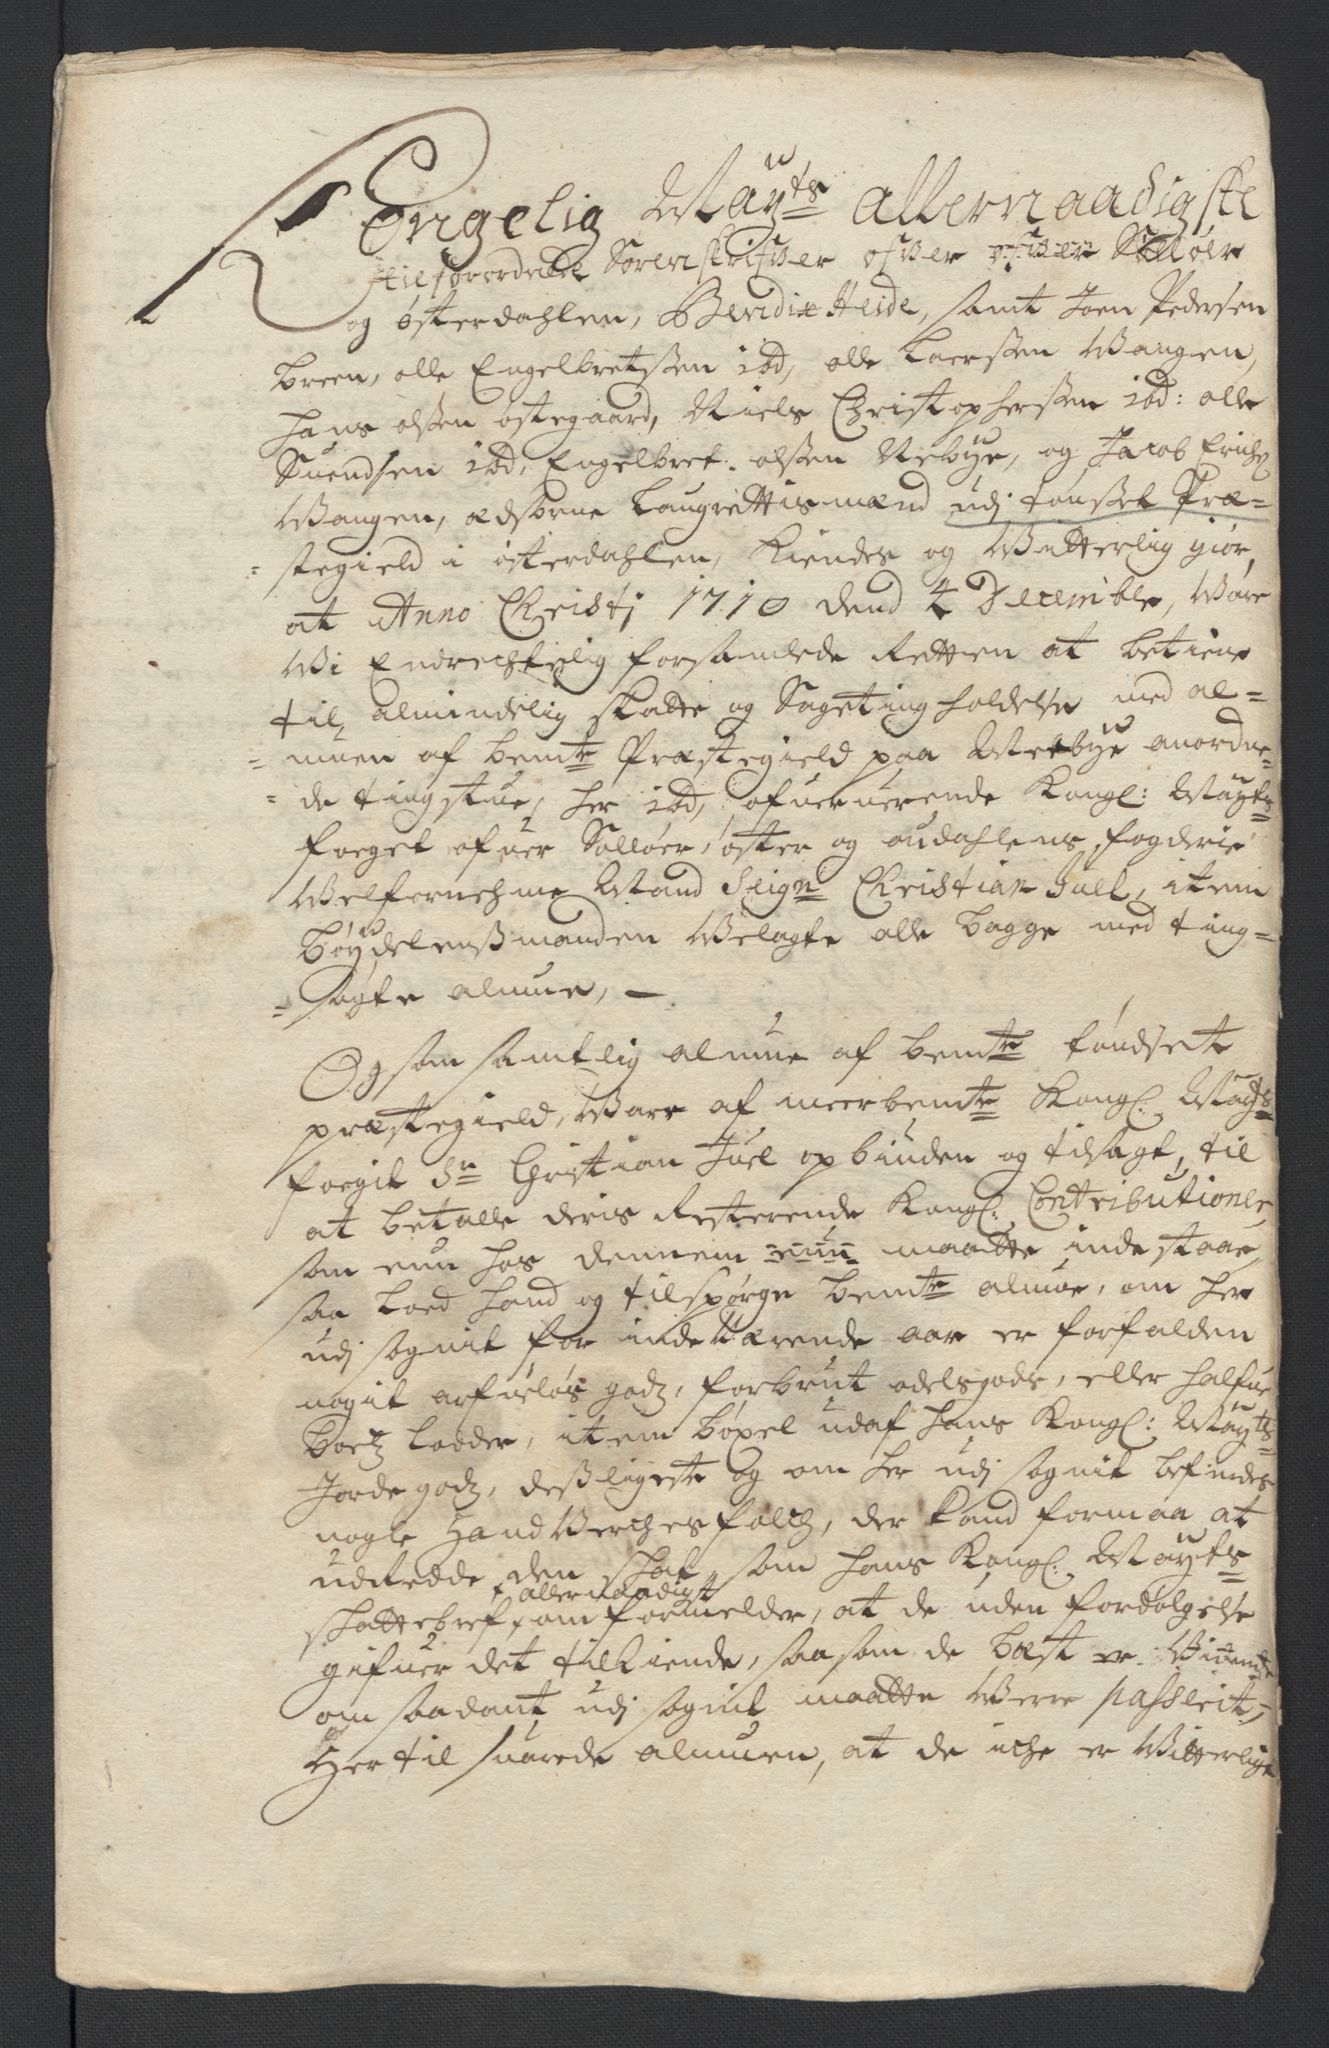 Kongelig Mayts allernaadigste
tilforordnede Sorenskrifver ofver ofver Solløer
og østerdahlen, Bendix Heide, samt Joen Pedersen
breen, olle Engelbretßen ibd, olle Laerßen Wangen,
hans olßen østegaard, Niels Christopherßen ibd: olle
Suendsen ibd, Engelbret olßen Nebye, og Jacob Erichs:
Wangen,ædsorne Laugrettismænd udj tonßet Præ-
stegield i østerdahlen, Kiendes og Witterlig giør,
at Anno Christj 1710 dend 4 Decembr, Ware
Wi Endrechtelig forsamlede Retten at betiene
til almindelig skatte og Sageting holdelse med al-
muen af bemte Præstegield paa Nebye anordne-
de tingstue, her ibd, ofueruerende Kongl: Mayts
foeget ofuer Solløer, øster og oudahlens fogderie
Welfornehme Mand Seigr Christian Juel, item
bøydelenßmanden Welagte olle bagge med ting-
søgte almue, —
Og som samtlig almue af bemte tøndset
præstegield, Ware af meerbemte Kongl: Mayts
foegit Sr Christian Juel opbuden og tilsagt, til
at betalle deris Resterende Kongl: Contributioner
som nun hos dennem nun maatte indestaae,
saa Loed hand og tilspørge bemte almue, om her
udj sognit for indeWærende aar er forfalden
nogit arfueløs godz, forbrut odelsgods, eller halfue
boetz Lodder, item bøxel udaf hans Kongl: Mayts
Jordegodz, desligeste og om her udj sognit befindes
nogle HandWerchesfolch, der kand formaa at
udRedde den skat som hans Kongl: Mayts
allernaadigst
skattebref om formelder, at de uden fordølgelse
gifuer det tilkiende, saasom de best er Widende
om saadant udj sognit maatte Werre passeit,
Hertil suarede almuen, at de iche er Witterligt